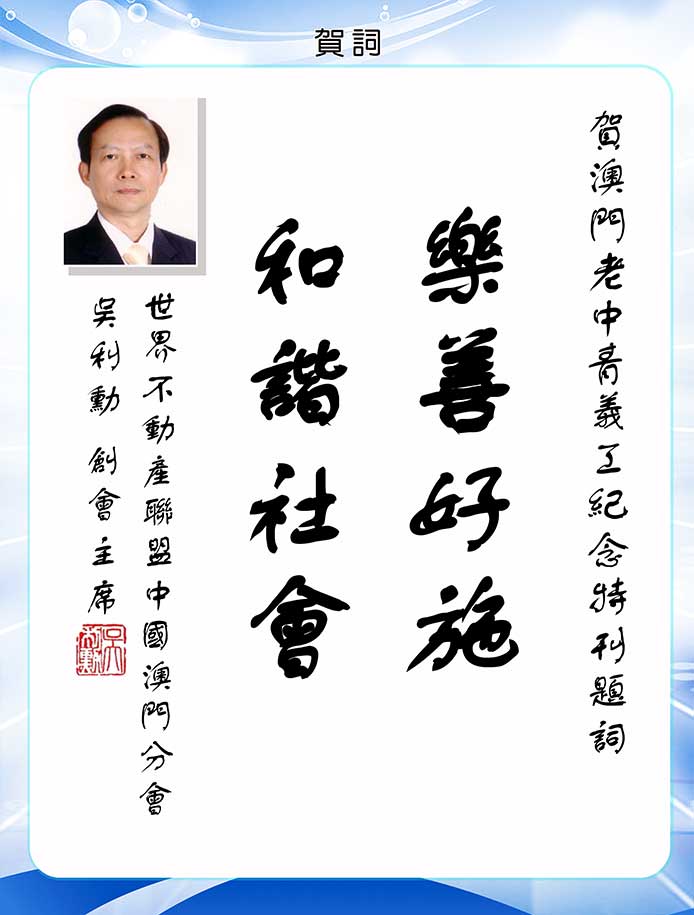 賀詞
賀澳門老中青義工紀念特刊題詞
樂善好施
和諧社會
世界不動產聯盟中國澳門分會
吳利勳 創會主席
吳利勳